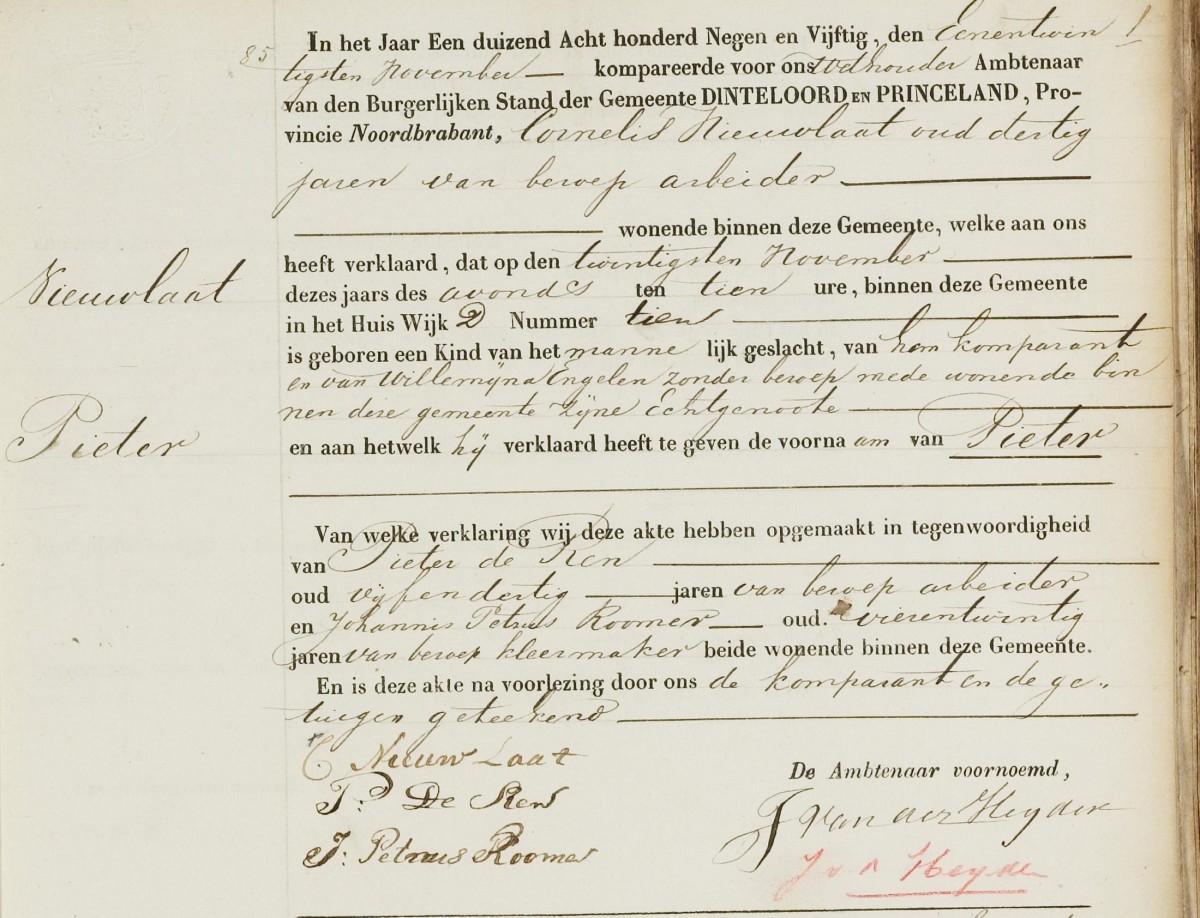 85
In het Jaar Een duizend Acht honderd Negen en Vijftig, den Eenentwin
tigsten November kompareerde voor ons Ambtenaar
van den Burgerlijken Stand der Gemeente DINTELOORD EN PRINCELAND, Pro-
vincie Noordbrabant, Cornelis Nieuwlaat oud dertig
jaren van beroep arbeider
wonende binnen deze Gemeente, welke aan ons
heeft verklaard, dat op den twintigsten November
Nieuwlaat
dezes jaars des avonds ten tien ure, binnen deze Gemeente
in het Huis Wijk D Nummer tien
is geboren een Kind van het manne lijk geslacht, van hem komparant
en van Willemijna Engelen zonder beroep mede wonende bin
nen deze gemeente zijne Echtgenoote
Pieter
en aan hetwelk hij verklaard heeft te geven de voorna am van Pieter
Van welke verklaring wij deze akte hebben opgemaakt in tegenwoordigheid
van Pieter de Ren
oud vijfendertig jaren van beroep arbeider
en Johannis Petrus Roomer oud. vierentwintig
jaren van beroep kleermaker beide wonende binnen deze Gemeente.
En is deze akte na voorlezing door ons de komparant en de ge„
tuigen geteekend
C Nieuw Laat
P: De Ren
J: Petrus Roomer
De Ambtenaar voornoemd,
J van der Heyden
J v d Heyden